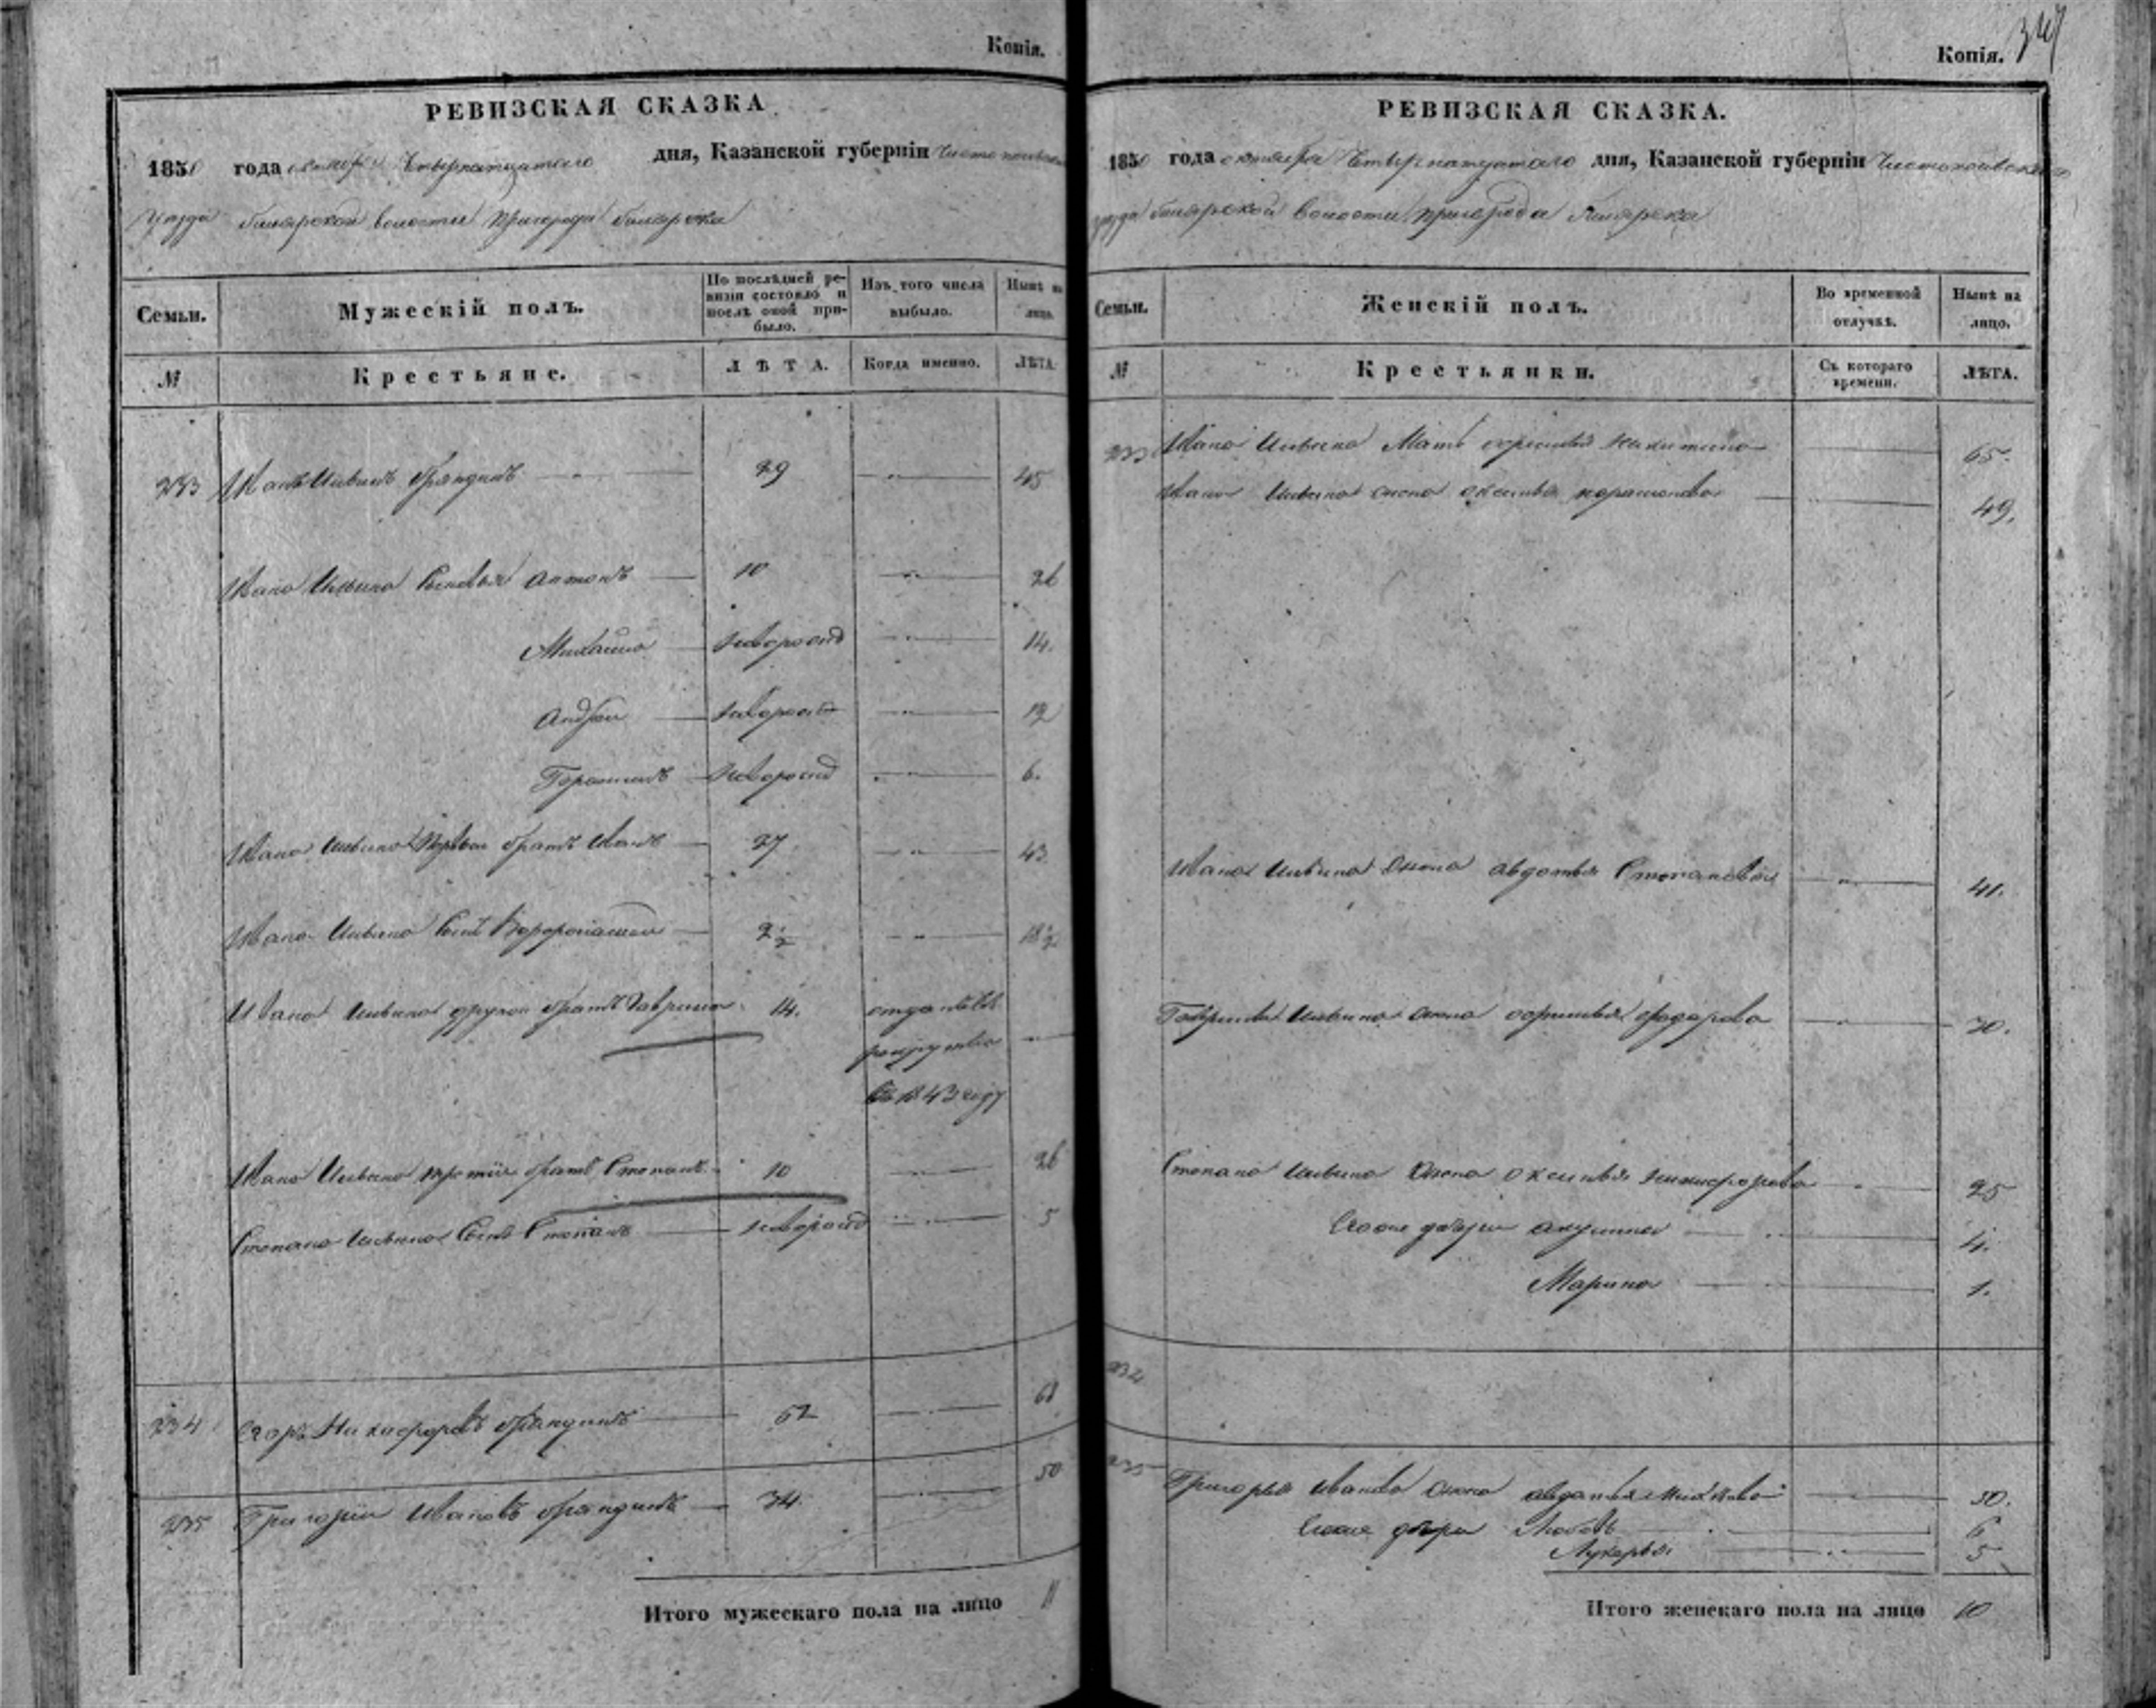 Копія.
РЕВИЗСКАЯ СКАЗКА
1850 года октября Четырнатцатого дня, Казанской губерніи Чистопольскаго
уезда билярской волости пригорода билярска
Семьи.
Мужескій полъ.
По послѣдней ре-
визіи состояло и
послѣ оной при-
было.
Изъ того числа
выбыло.
Нынѣ на
лицо.
№
Крестьяне.
ЛѢТА.
Когда именно.
ЛѢТА.
233 Иванъ Ильинъ 29 45
Ивана Ильина Сыновья антонъ 10 26
Михайла новорожд 14.
андрей новорожд 12
новорожд 6.
Ивана Ильина первой братъ Иванъ 27 43
Ивана Ильина Сынъ 2½ 18½
Ивана Ильина другой братъ Гаврила 14. отданъ въ
рекруты
въ 1843 году
Ивана Ильина третій братъ Степанъ 10 26
Степана Ильина Сынъ Степанъ новорожд 5
234 Егоръ Никифоровъ 52 68
235 Григорій Ивановъ 34. 50
Итого мужескаго пола на лицо 11
Копія. 347
РЕВИЗСКАЯ СКАЗКА.
1850 года октября Четырнатцатаго дня, Казанской губерніи Чистопольскаго
уезда билярской волости пригорода билярска
Семьи.
Женскій полъ.
Во временной
отлучкѣ.
Нынѣ на
лицо.
№
Крестьянки.
Съ котораго
времени.
ЛѢТА.
233 Ивана Ильина Мать Никитина 65.
Ивана Ильина жена 49.
Ивана Ильина жена авдотья Степановой 41.
Гаврилы Ильина жена 30.
Степана Ильина жена Никифорова 25
акулина 4.
Марина 1.
234
235 Григорья Иванова жена 50.
Любовь 6
Лукерья 5
Итого женскаго пола на лицо 10